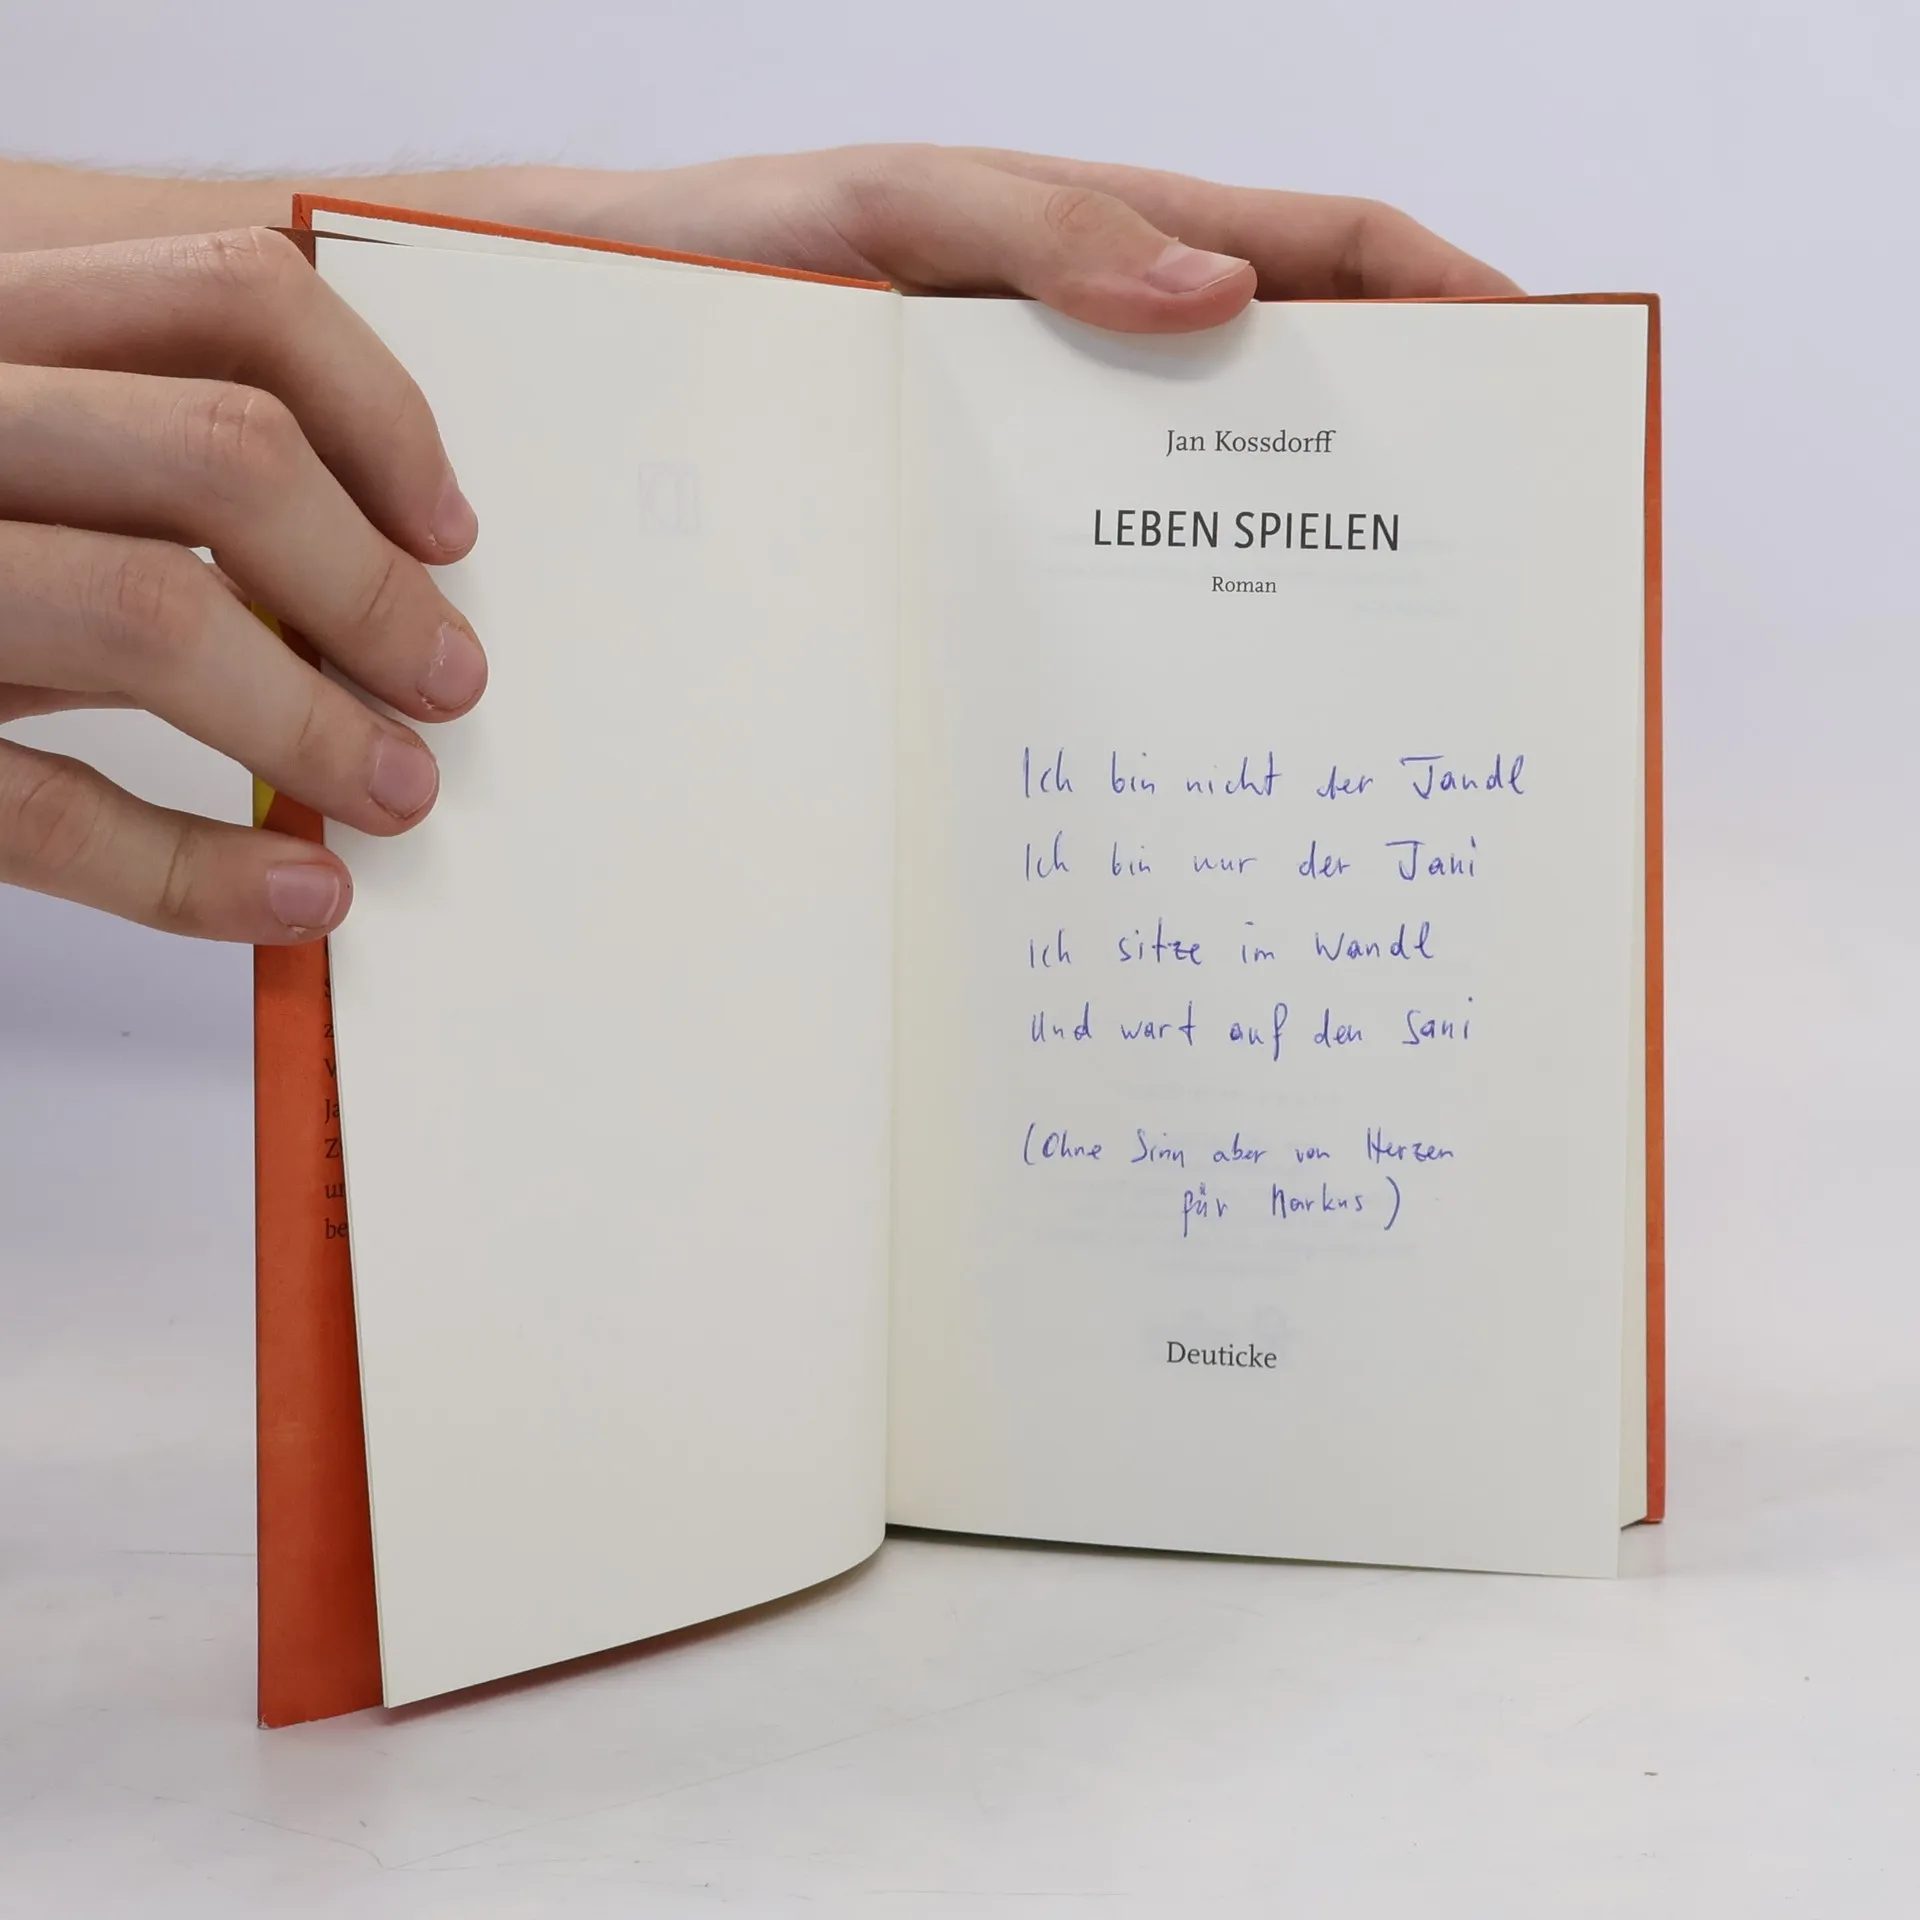 Jan Kossdorff
LEBEN SPIELEN
Roman
Ich bin nicht der Jandl
Ich bin nur der Jani
Ich sitze im Wandl
Und wart auf den Sani
(Ohne Sinn aber von Herzen
für Markus)
Deuticke
z
V
Ja
Z
un
be